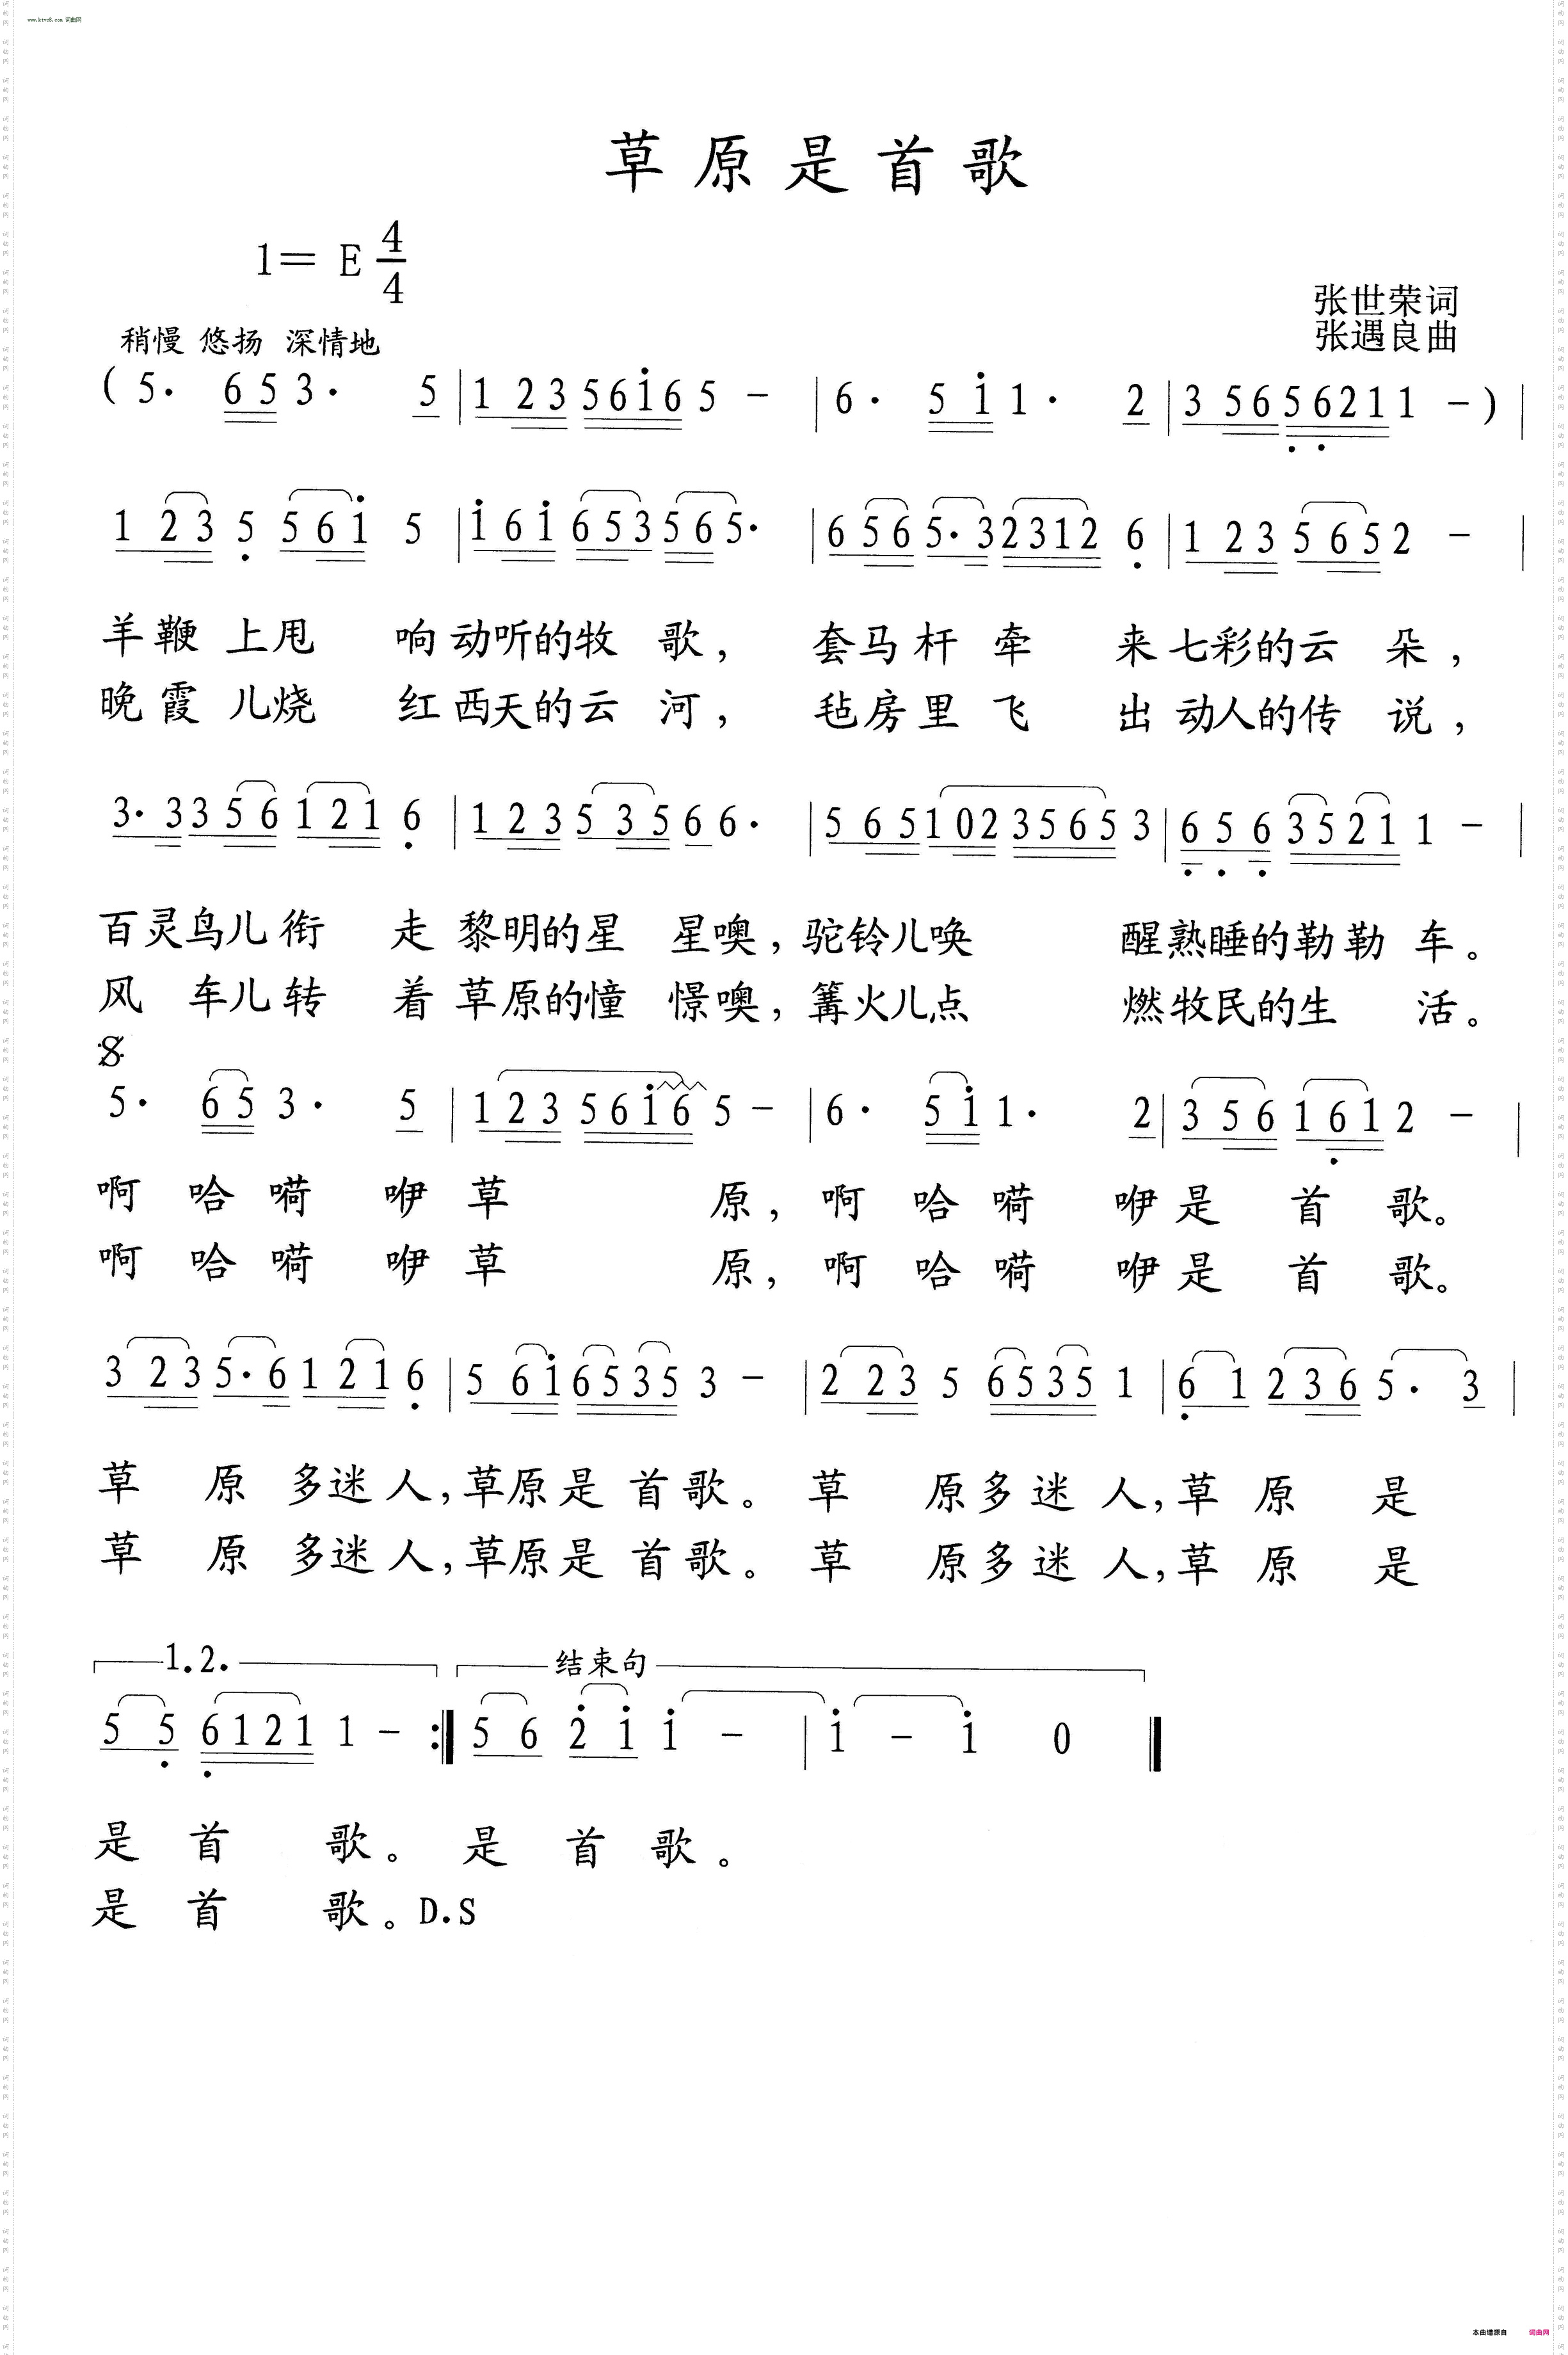 www.ktvc8.com 词曲网
草原是首歌
1= E 4/4
张世荣词
稍慢 悠扬 深情地
张遇良曲
( 5· 6 5 3· 5 | 1 2 3 5 6 i 6 5 - | 6· 5 i 1· 2 | 3 5 6 5 6 2 1 1 1 - ) |
1 2 3 5 5 6 i 5 | i 6 i 6 5 3 5 6 5· | 6 5 6 5· 3 2 3 1 2 6 | 1 2 3 5 6 5 2 - |
羊鞭上甩 响动听的牧 歌, 套马杆牵 来七彩的云 朵,
晚霞儿烧 红西天的云 河, 毡房里飞 出动人的传 说,
3· 3 3 5 6 1 2 1 6 | 1 2 3 5 3 5 6 6· | 5 6 5 1 0 2 3 5 6 5 3 | 6 5 6 3 5 2 1 1 - |
百灵鸟儿衔 走黎明的星 星噢, 驼铃儿唤 醒熟睡的勒勒车。
风 车儿转 着草原的憧 憬噢, 篝火儿点 燃牧民的生 活。
5· 6 5 3· 5 | 1 2 3 5 6 i 6 5 - | 6· 5 i 1· 2 | 3 5 6 1 6 1 2 - |
啊 哈 嗬 咿草 原, 啊 哈 嗬 咿是 首 歌。
啊 哈 嗬 咿草 原, 啊 哈 嗬 咿是 首 歌。
3 2 3 5· 6 1 2 1 6 | 5 6 i 6 5 3 5 3 - | 2 2 3 5 6 5 3 5 1 | 6 1 2 3 6 5· 3 |
草 原 多迷人,草原是 首歌。 草 原多迷 人,草 原 是
草 原 多迷人,草原是 首歌。 草 原多迷 人,草 原 是
1.2. 结束句
5 5 6 1 2 1 1 - :‖ 5 6 2 i i - | i - i 0 ‖
是 首 歌。 是 首 歌。
是 首 歌。D.S
本曲谱源自 词曲网